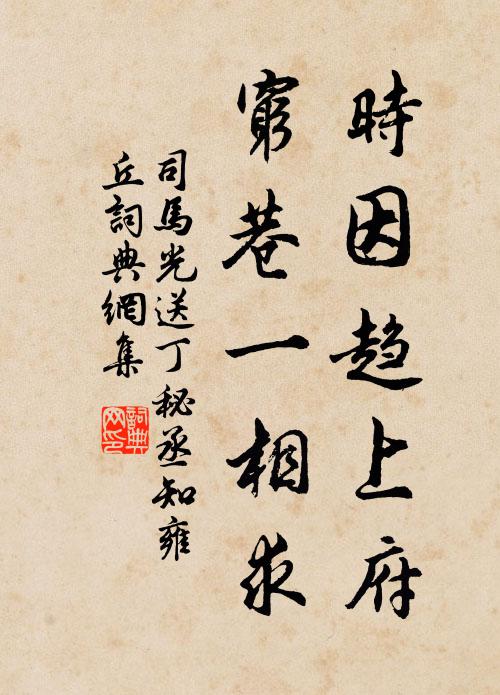 時因趨上府
窮巷一相求
司馬光送丁秘丞知雍
丘詞典網集
詞典
网印